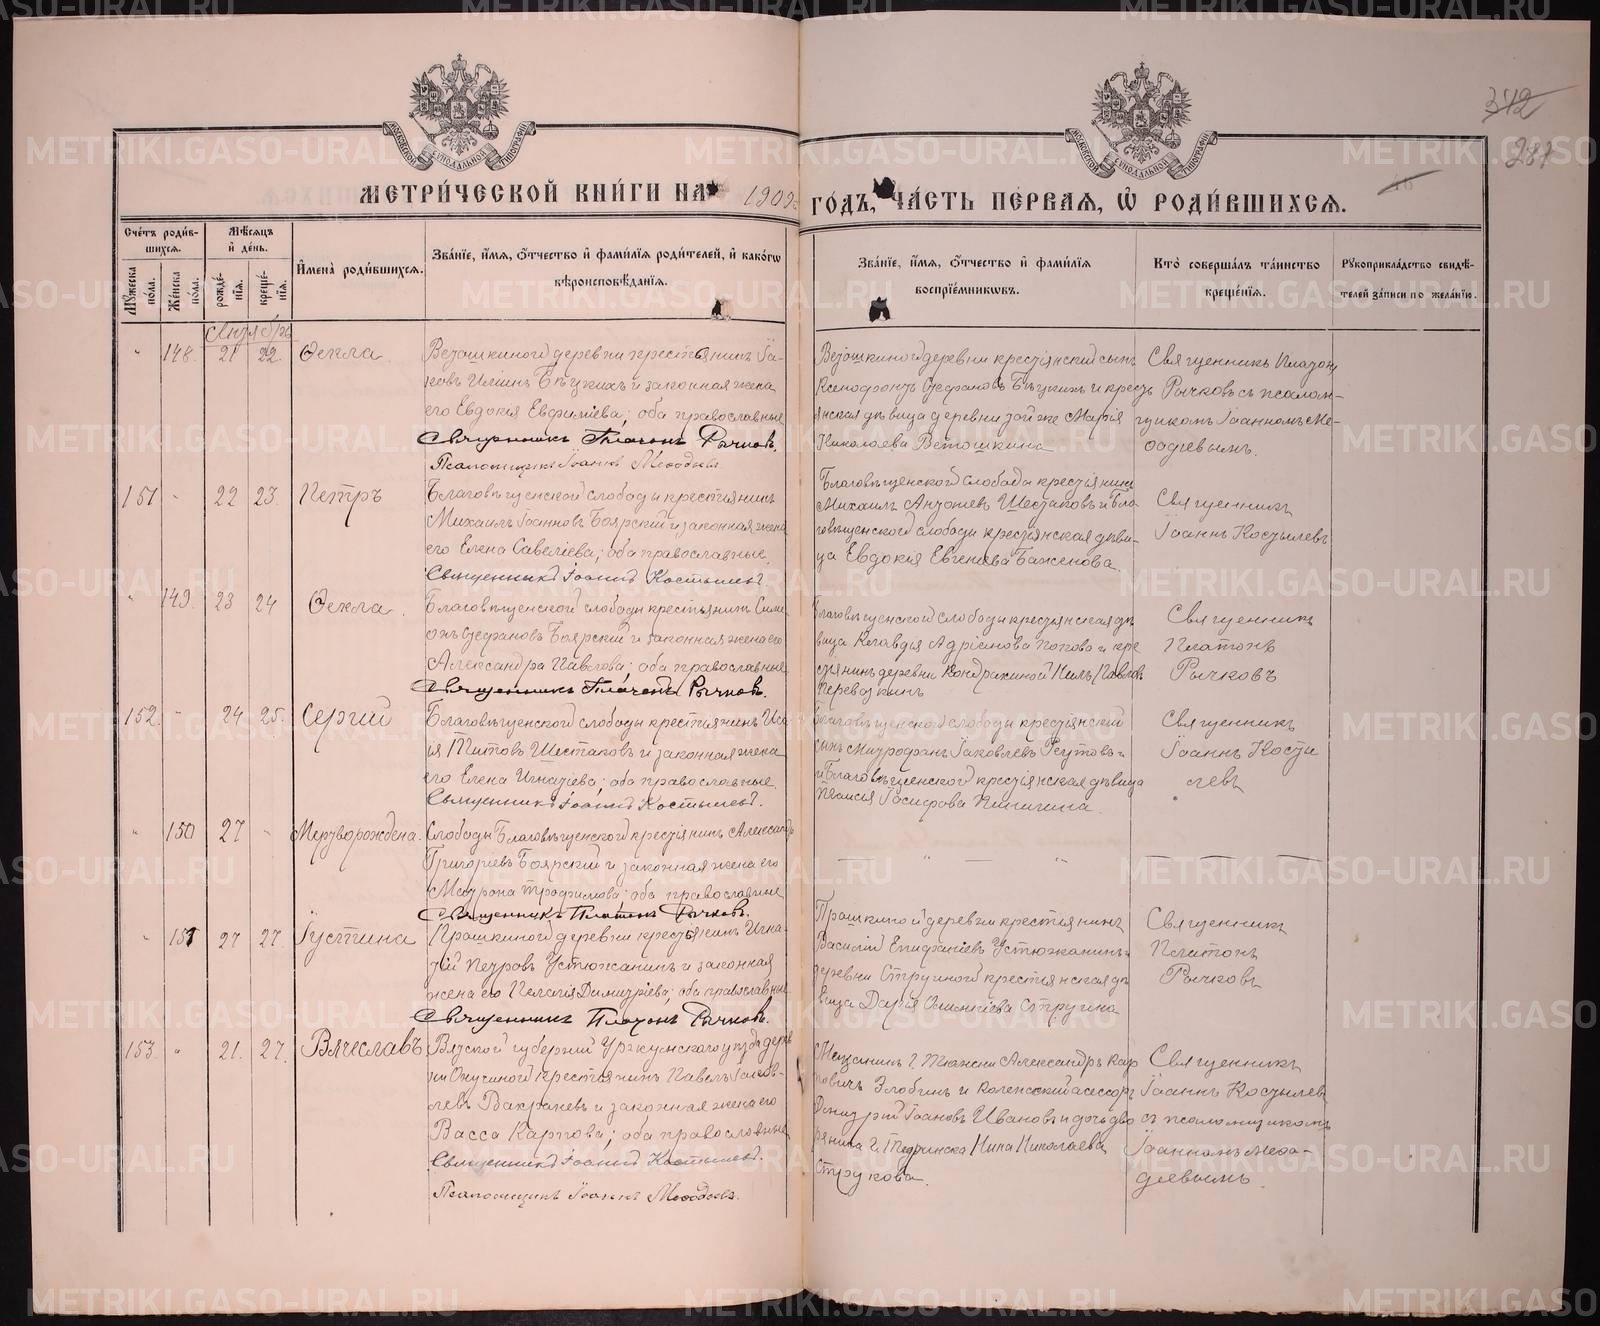 342
287
46
МОСКОВСКОЙ СѴНОДАЛЬНОЙ ТИПОГРАФІИ
МОСКОВСКОЙ СѴНОДАЛЬНОЙ ТИПОГРАФІИ
МЕТРИ́ЧЕСКОЙ КНИ́ГИ НА 1909 ГОДЪ, ЧА́СТЬ ПЕ́РВАѦ, Ѽ РОДИ́ВШИХСѦ.
Сче́тъ роди́вшихсѧ.
Мꙋ́жеска по́ла.
Же́нска по́ла.
Мѣ́сѧцъ и҆ де́нь.
рожде́нїѧ.
креще́нїѧ.
И҆мена̀ роди́вшихсѧ.
Зва́нїе, и҆́мѧ, ѻ҆́тчество и҆ фами́лїѧ роди́телей, и҆ како́гѡ
вѣроисповѣ́данїѧ.
Зва́нїе, и҆́мѧ, ѻ҆́тчество и҆ фами́лїѧ
воспрїе́мникѡвъ.
Кто̀ соверша́лъ та́инство
креще́нїѧ.
Рꙋкоприкла́дство свидѣ́-
телей за́писи по жела́нїю.
148. 21 22. Ѳекла
Ветошкиной деревни крестьянинъ Іа-
ковъ Иліинъ Бѣцкихъ и законная жена
его Евдокія Евфиміева; оба православные
Священникъ Платонъ Рычковъ.
Псаломщикъ Іоаннъ Меѳодіевъ.
Ветошкиной деревни крестьянскій сынъ
Ксенофонтъ Стефановъ Бѣцкихъ и кресть
янская дѣвица деревни той же Марія
Николаева Ветошкина
Священникъ Платонъ
Рычковъ съ псалом-
щикомъ Іоанномъ Ме-
ѳодіевымъ.
151 " 22 23. Петръ
Благовѣщенской слободы крестьянинъ
Михаилъ Іоанновъ Боярскій и законная жена
его Елена Савеліева; оба православные.
Священникъ Іоаннъ Костылевъ.
Благовѣщенской слободы крестьянинъ
Михаилъ Антоніевъ Шестаковъ и Бла-
говѣщенской слободы крестьянская дѣви-
ца Евдокія Евгеніева Баженова.
Священникъ
Іоаннъ Костылевъ
" 149. 23 24 Ѳекла.
Благовѣщенской слободы крестьянинъ Симе
онъ Стефановъ Боярскій и законная жена его
Александра Павлова; оба православные
Священникъ Платонъ Рычковъ.
Благовѣщенской слободы крестьянская дѣ
вица Клавдія Адріанова Попова и кре
стьянинъ деревни Кондракиной Нилъ Павлов
Перевозкинъ
Священникъ
Платонъ
Рычковъ
152. " 24 25. Сергій
Благовѣщенской слободы крестьянинъ Иса
ія Титовъ Шестаковъ и законная жена
его Елена Игнатіева; оба православные.
Священникъ Іоаннъ Костылевъ.
Благовѣщенской слободы крестьянскій
сынъ Митрофанъ Іаковлевъ и
и Благовѣщенской крестьянская дѣвица
Таисія Іосифова Пинигина.
Священникъ
Іоаннъ Косты
левъ
" 150 27 " Мертворожденa.
Слободы Благовѣщенской крестьянинъ Александръ
Григоріевъ Боярскій и законная жена его
Матрона Трофимова; оба православные
Священникъ Платонъ Рычковъ.
" 151 27 27. Іустина
Прошкиной деревни крестьянинъ Игна-
тій Петровъ Устюжанинъ и законная
жена его Пелагія Димитріева; оба православные
Священникъ Платонъ Рычковъ.
Прошкиной деревни крестьянинъ
Василій Епифаніевъ Устюжанинъ и
деревни Стругиной крестьянская дѣ
вица Дарія Струgина
Священникъ
Платонъ
Рычковъ
153. " 21. 27. Вячеславъ
Вятской губерніи Уржумскаго уѣзда дерев
ни крестьянинъ Павелъ Іаков-
левъ Вахрачевъ и законная жена его
Васса Карпова; оба православные
Священникъ Іоаннъ Костылевъ.
Псаломщикъ Іоаннъ Меѳодіевъ.
Мѣщанинъ г. Тюмени Александръ Кар
повичъ Злобинъ и коллежскій ассесоръ
Димитрій Іоанновъ Ивановъ и дочь дво
рянина г. Туринска Нина Николаева
Струкова.
Священникъ
Іоаннъ Костылев
съ псаломщикомъ
Іоанномъ Меѳо-
діевымъ.
METRIKI.GASO-URAL.RU